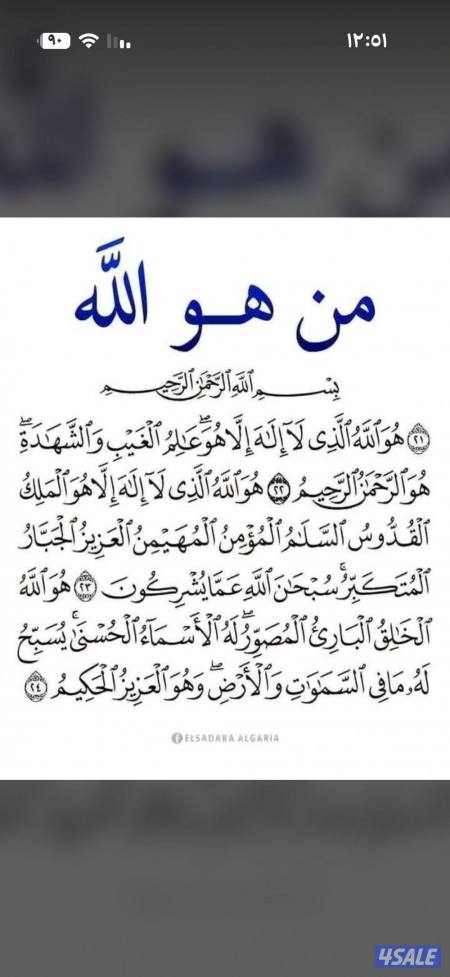 ٩٠
١٢:٥١
من هو الله
بِسْمِ ٱللَّهِ ٱلرَّحْمَٰنِ ٱلرَّحِيمِ
٢١ هُوَ ٱللَّهُ ٱلَّذِى لَآ إِلَٰهَ إِلَّا هُوَ ۖ عَٰلِمُ ٱلْغَيْبِ وَٱلشَّهَٰدَةِ ۖ
هُوَ ٱلرَّحْمَٰنُ ٱلرَّحِيمُ ٢٢ هُوَ ٱللَّهُ ٱلَّذِى لَآ إِلَٰهَ إِلَّا هُوَ ٱلْمَلِكُ
ٱلْقُدُّوسُ ٱلسَّلَٰمُ ٱلْمُؤْمِنُ ٱلْمُهَيْمِنُ ٱلْعَزِيزُ ٱلْجَبَّارُ
ٱلْمُتَكَبِّرُ ۚ سُبْحَٰنَ ٱللَّهِ عَمَّا يُشْرِكُونَ ٢٣ هُوَ ٱللَّهُ
ٱلْخَٰلِقُ ٱلْبَارِئُ ٱلْمُصَوِّرُ ۖ لَهُ ٱلْأَسْمَآءُ ٱلْحُسْنَىٰ ۚ يُسَبِّحُ
لَهُۥ مَا فِى ٱلسَّمَٰوَٰتِ وَٱلْأَرْضِ ۖ وَهُوَ ٱلْعَزِيزُ ٱلْحَكِيمُ ٢٤
ELSADAKA ALGARIA
4SALE